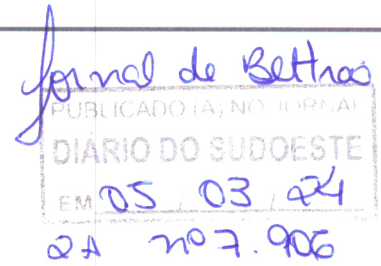 Jornal de Beltrão
PUBLICADO (A) NO JORNAL
DIÁRIO DO SUDOESTE
EM 05 / 03 / 24
2A nº 7.906